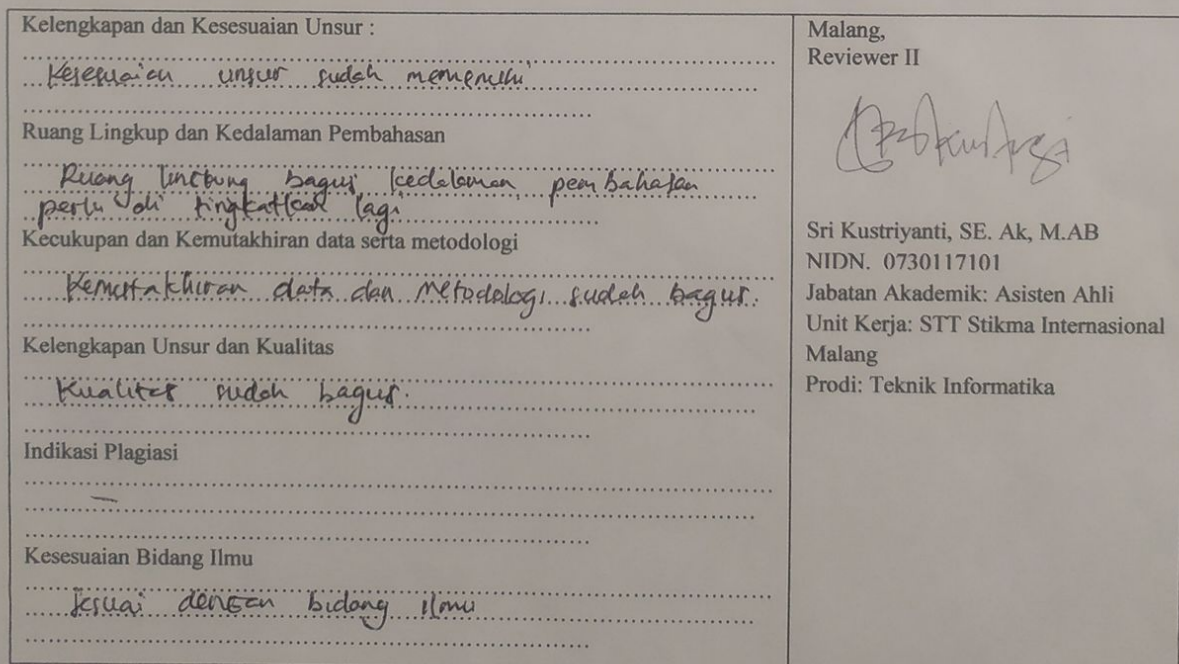 Kelengkapan dan Kesesuaian Unsur :
Kesesuaian unsur sudah memenuhi
Ruang Lingkup dan Kedalaman Pembahasan
Ruang Lingkung bagus, kedalaman pembahasan
perlu di tingkatkan lagi
Kecukupan dan Kemutakhiran data serta metodologi
Kemutakhiran data dan Metodologi sudah bagus.
Kelengkapan Unsur dan Kualitas
Kualitas sudah bagus.
Indikasi Plagiasi
—
Kesesuaian Bidang Ilmu
Sesuai dengan bidang ilmu
Malang,
Reviewer II
Sri Kustriyanti, SE. Ak, M.AB
NIDN. 0730117101
Jabatan Akademik: Asisten Ahli
Unit Kerja: STT Stikma Internasional
Malang
Prodi: Teknik Informatika